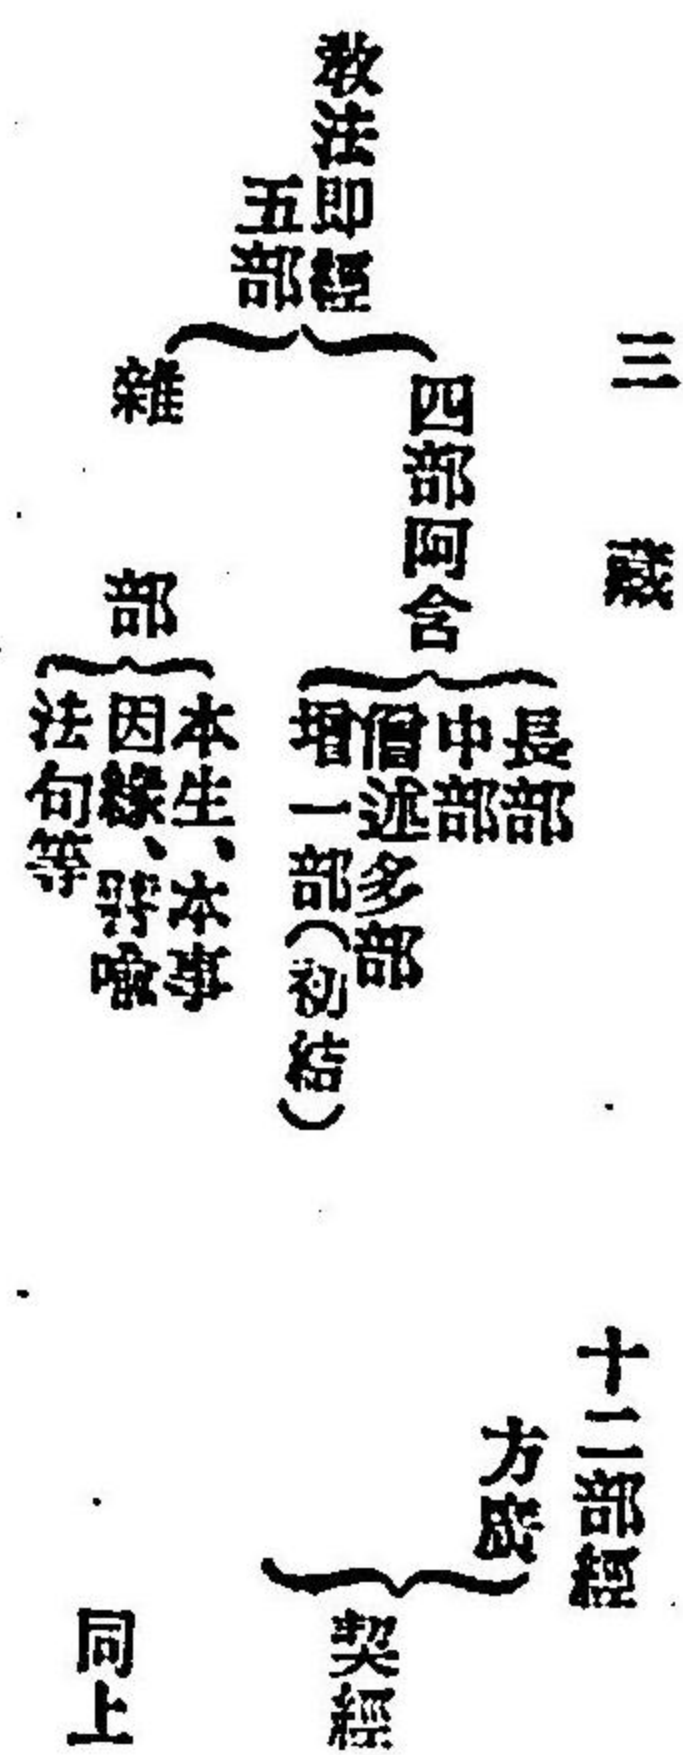 三藏
十二部經
教法即經
五部
四部阿含
長部
中部
僧述多部
增一部(初結)
方廣
契經
雜部
本生、本事
因緣、譬喻
法句等
同上